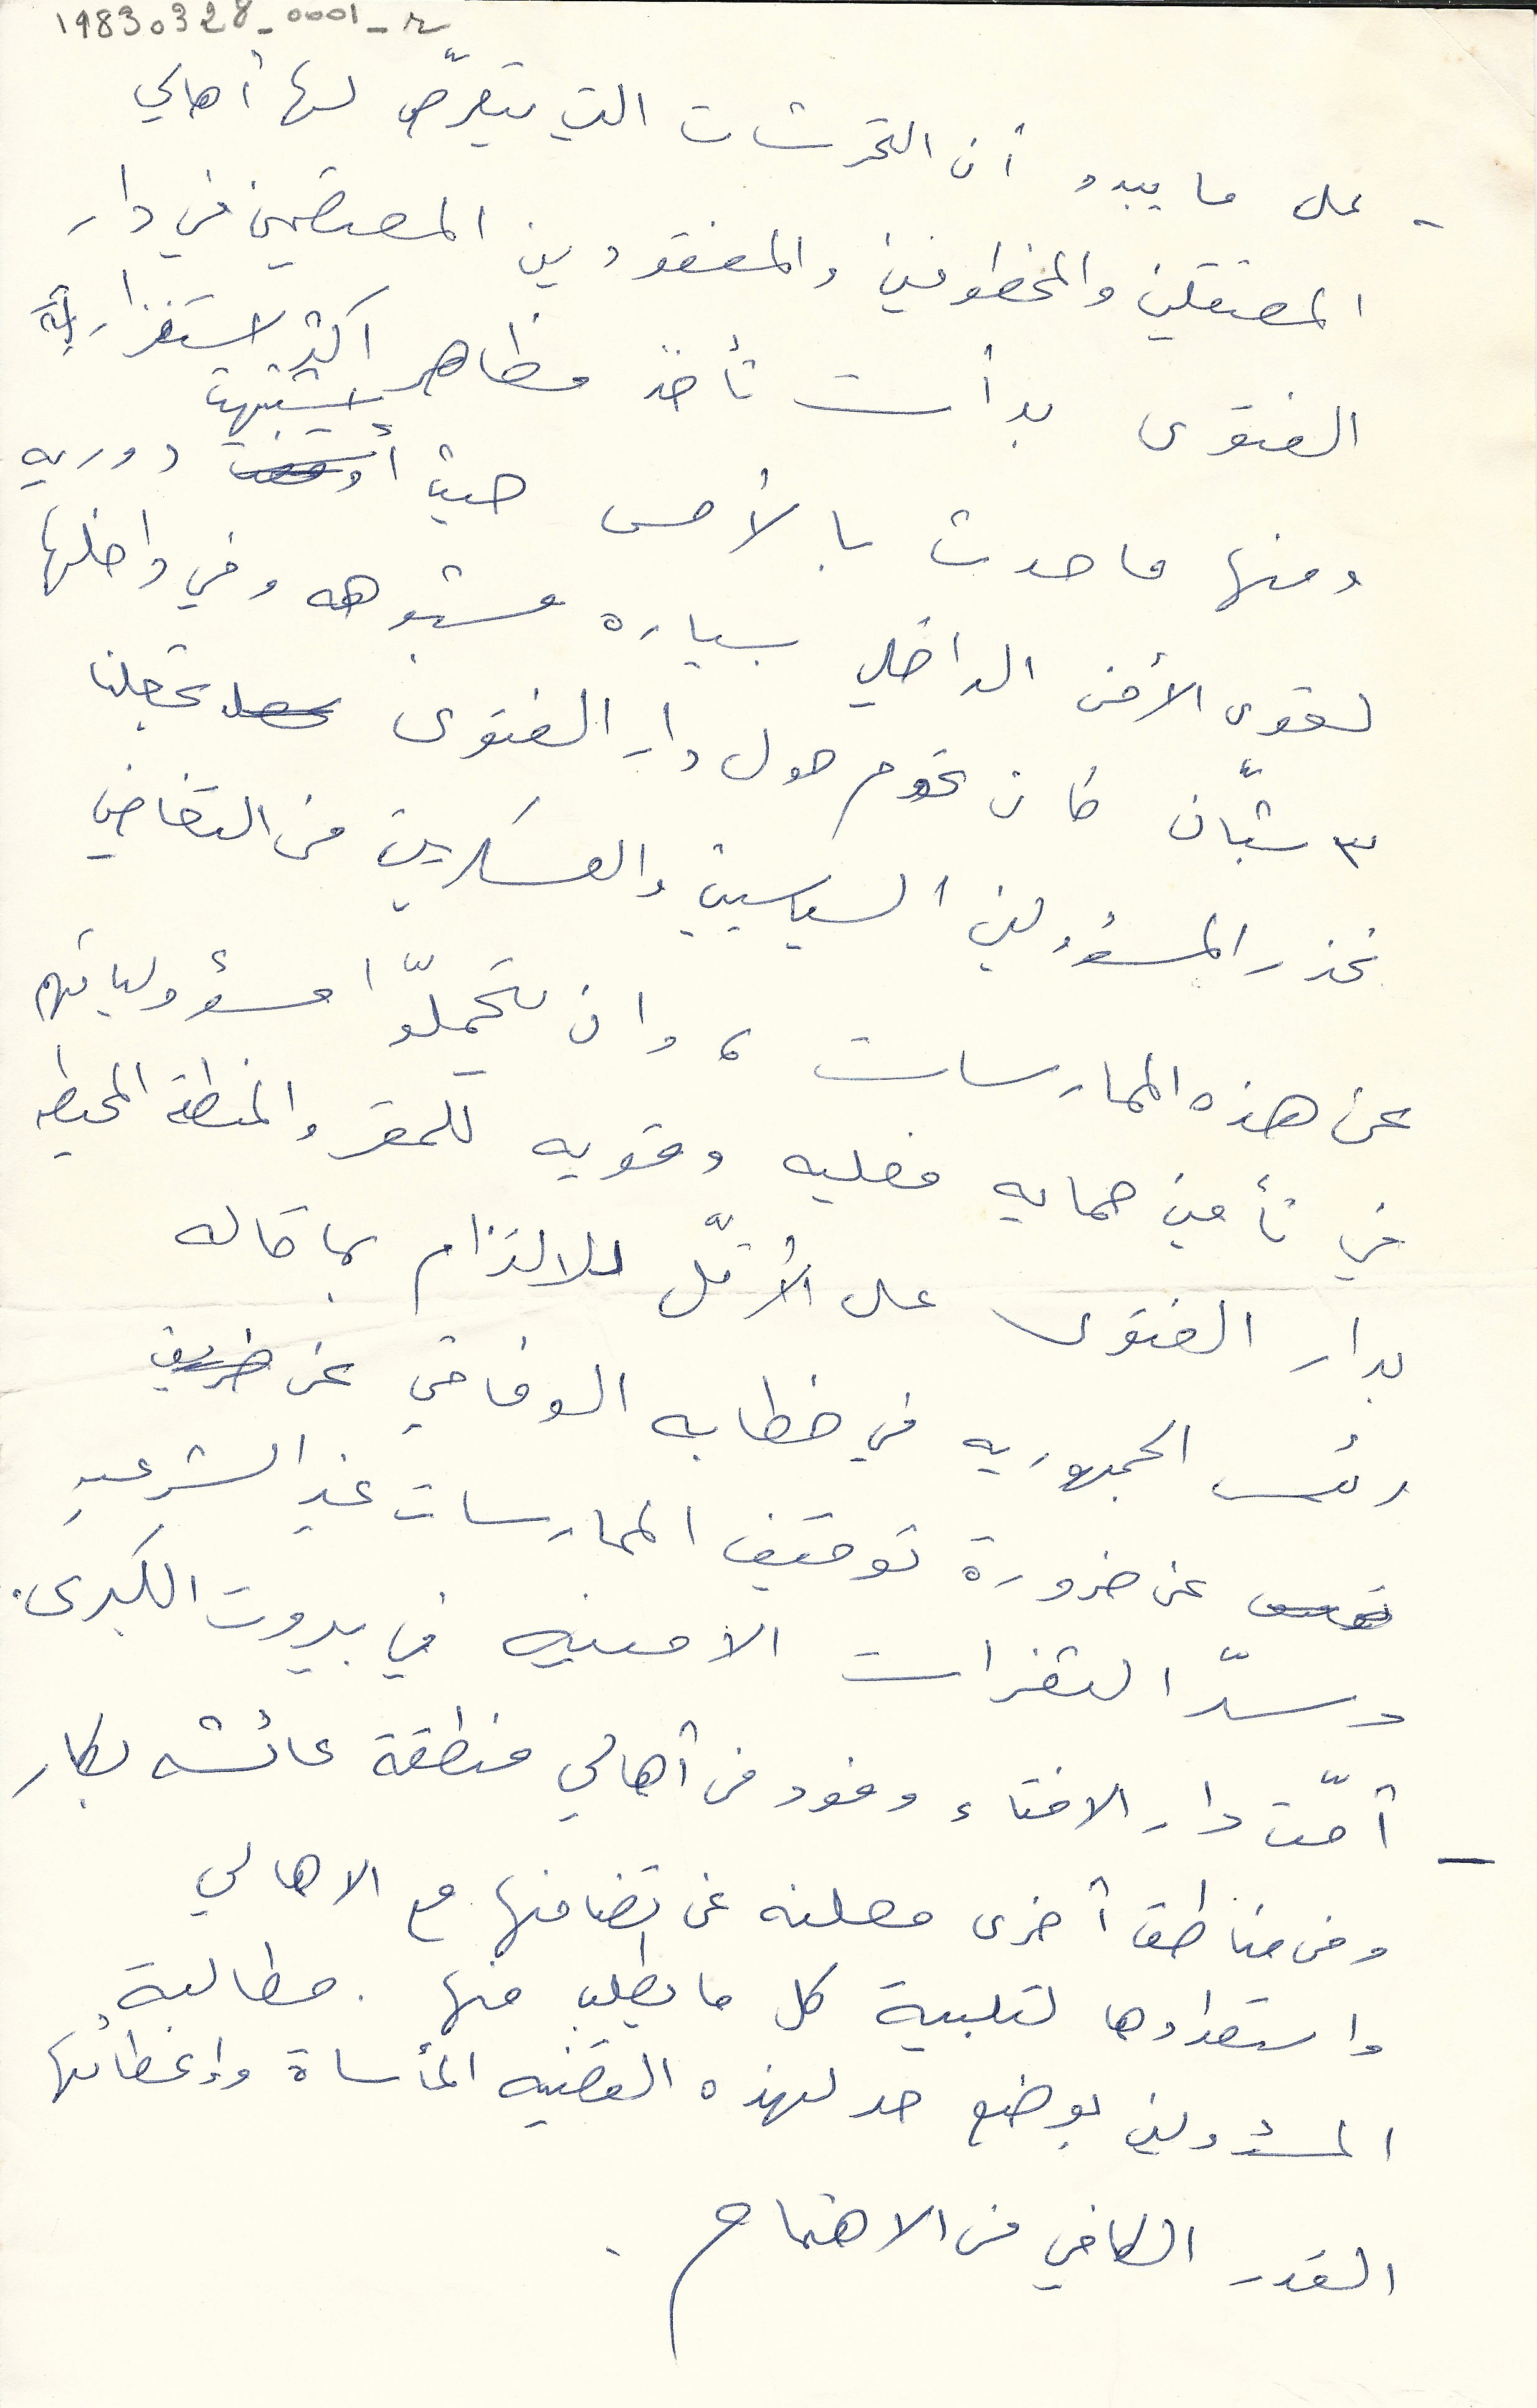 19830328_0001_r
- على ما يبدو أن التحرشات التي يتعرّض لها أهالي
المعتقلين والمخطوفين والمفقودين المعتصمين في دار
الفتوى بدأت تأخذ مظاهر اكثر استفزازية
اشتبهت
ومنها ما حدث بالأمس حيث أوقفت دوريه
لقوى الأمن الداخلي بسياره مشبوهه وفي داخلها
٣ شبّان كان تحوم حول دار الفتوى تجعلنا
نحذر المسؤولين السياسيين والعسكريين من التغاضي
عن هذه الممارسات، وان يتحملّوا مسؤولياتهم
في تأمين حمايه فعليه وقويه للمقر والمنطقة المحيطه
بدار الفتوى على الأقلّ للالتزام بما قاله
رئيس الجمهوريه في خطابه الوفاقي عن طريق
عن ضرورة توقيف الممارسات غير الشرعيه
وسدّ الثغرات الامنيه في بيروت الكبرى.
- أمّت دار الافتاء وفود من أهالي منطقة عائشه بكار
ومن مناطق أخرى معلنه عن تضامنها مع الاهالي
واستعدادها لتلبية كل ما يطلب منها. مطالبة
المسؤولين بوضع حد لهذه القضيه المأساة وإعطائها
القدر الكافي من الاهتمام.